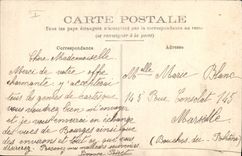 CARTE POSTALE
Tous les pays étrangers n'acceptent pas la correspondance au verso
(se renseigner à la poste)
Correspondance
Adresse
Chère Mademoiselle
Merci de votre offre
charmante j'accepterai
tous les genres de cartes que
vous voudrez bien m'envoyer
et je vous enverrai en échange
des vues de Bourges ainsi que
des environs et tout ce qui
Recevez mes
Melle Marie Blanc
145 Rue Consolat 145
Marseille
(Bouches du Rhône)